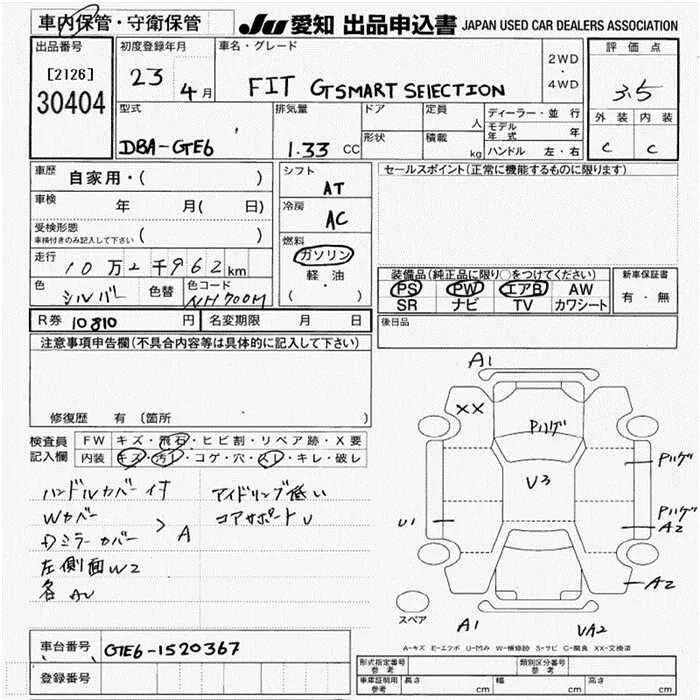 車内保管・守衛保管 JU 愛知 出品申込書 JAPAN USED CAR DEALERS ASSOCIATION
出品番号 初度登録年月 車名・グレード 評価点
[2126] 23 4月 FIT G SMART SELECTION 2WD・4WD 3.5
30404 型式 排気量 ドア 定員 人 ディーラー・並行 外装 内装
DBA-GTE6 1.33 CC 形状 積載 kg モデル年式 年 C C
ハンドル 左・右
車歴 自家用・( ) シフト AT セールスポイント(正常に機能するものに限ります)
車検 年 月( 日) 冷房 AC
受検形態 ( )
車検付きのみ記入して下さい
走行 10万2千962km 燃料 ガソリン 軽・油 ( ・ )
装備品(純正品に限り○をつけてください) 新車保証書
色 シルバー 色替 色コード NH700M PS PW エアB AW 有・無
SR ナビ TV カワシート
R券 10810 円 名変期限 月 日 後日品
注意事項申告欄(不具合内容等は具体的に記入して下さい)
修復歴 有 (箇所 )
検査員記入欄 FW キズ・飛石・ヒビ割・リペア跡・X要
内装 キズ・汚レ・コゲ・穴・スレ・キレ・破レ
ハンドルカバー付 アイドリング低い
Wカバー コアサポートU
Dミラーカバー > A
左側面W2
各AU
A1
XX
Pハゲ
Pハゲ
V3
Pハゲ
U1 A2
A2
スペア
A1 UA2
A-キズ E-エクボ U-凹み W-補修跡 S-サビ C-腐食 XX-交換済
車台番号 GTE6-1520367
登録番号
形式指定番号 参考 類別区分番号 参考
車庫証明用 参考 長さ cm 幅 cm 高さ cm